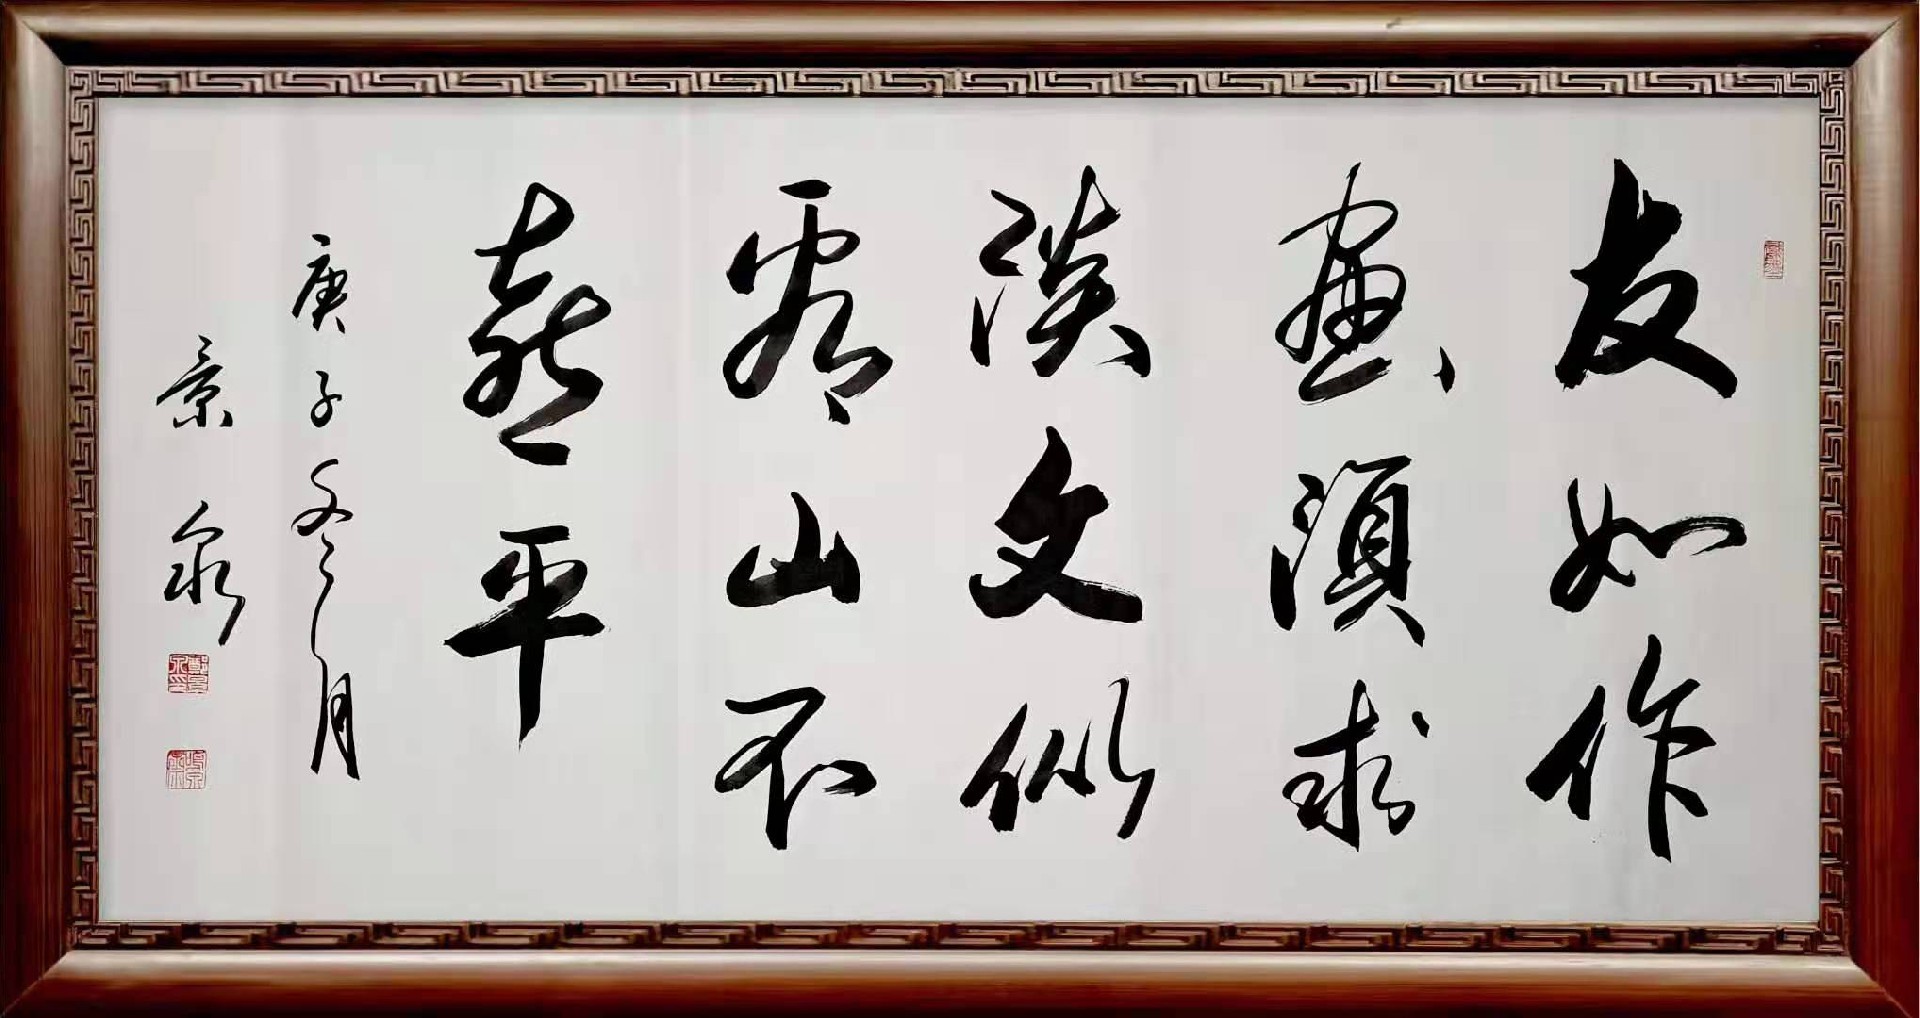 友如作
画须求
淡文似
看山不
喜平
庚子冬月
景泉